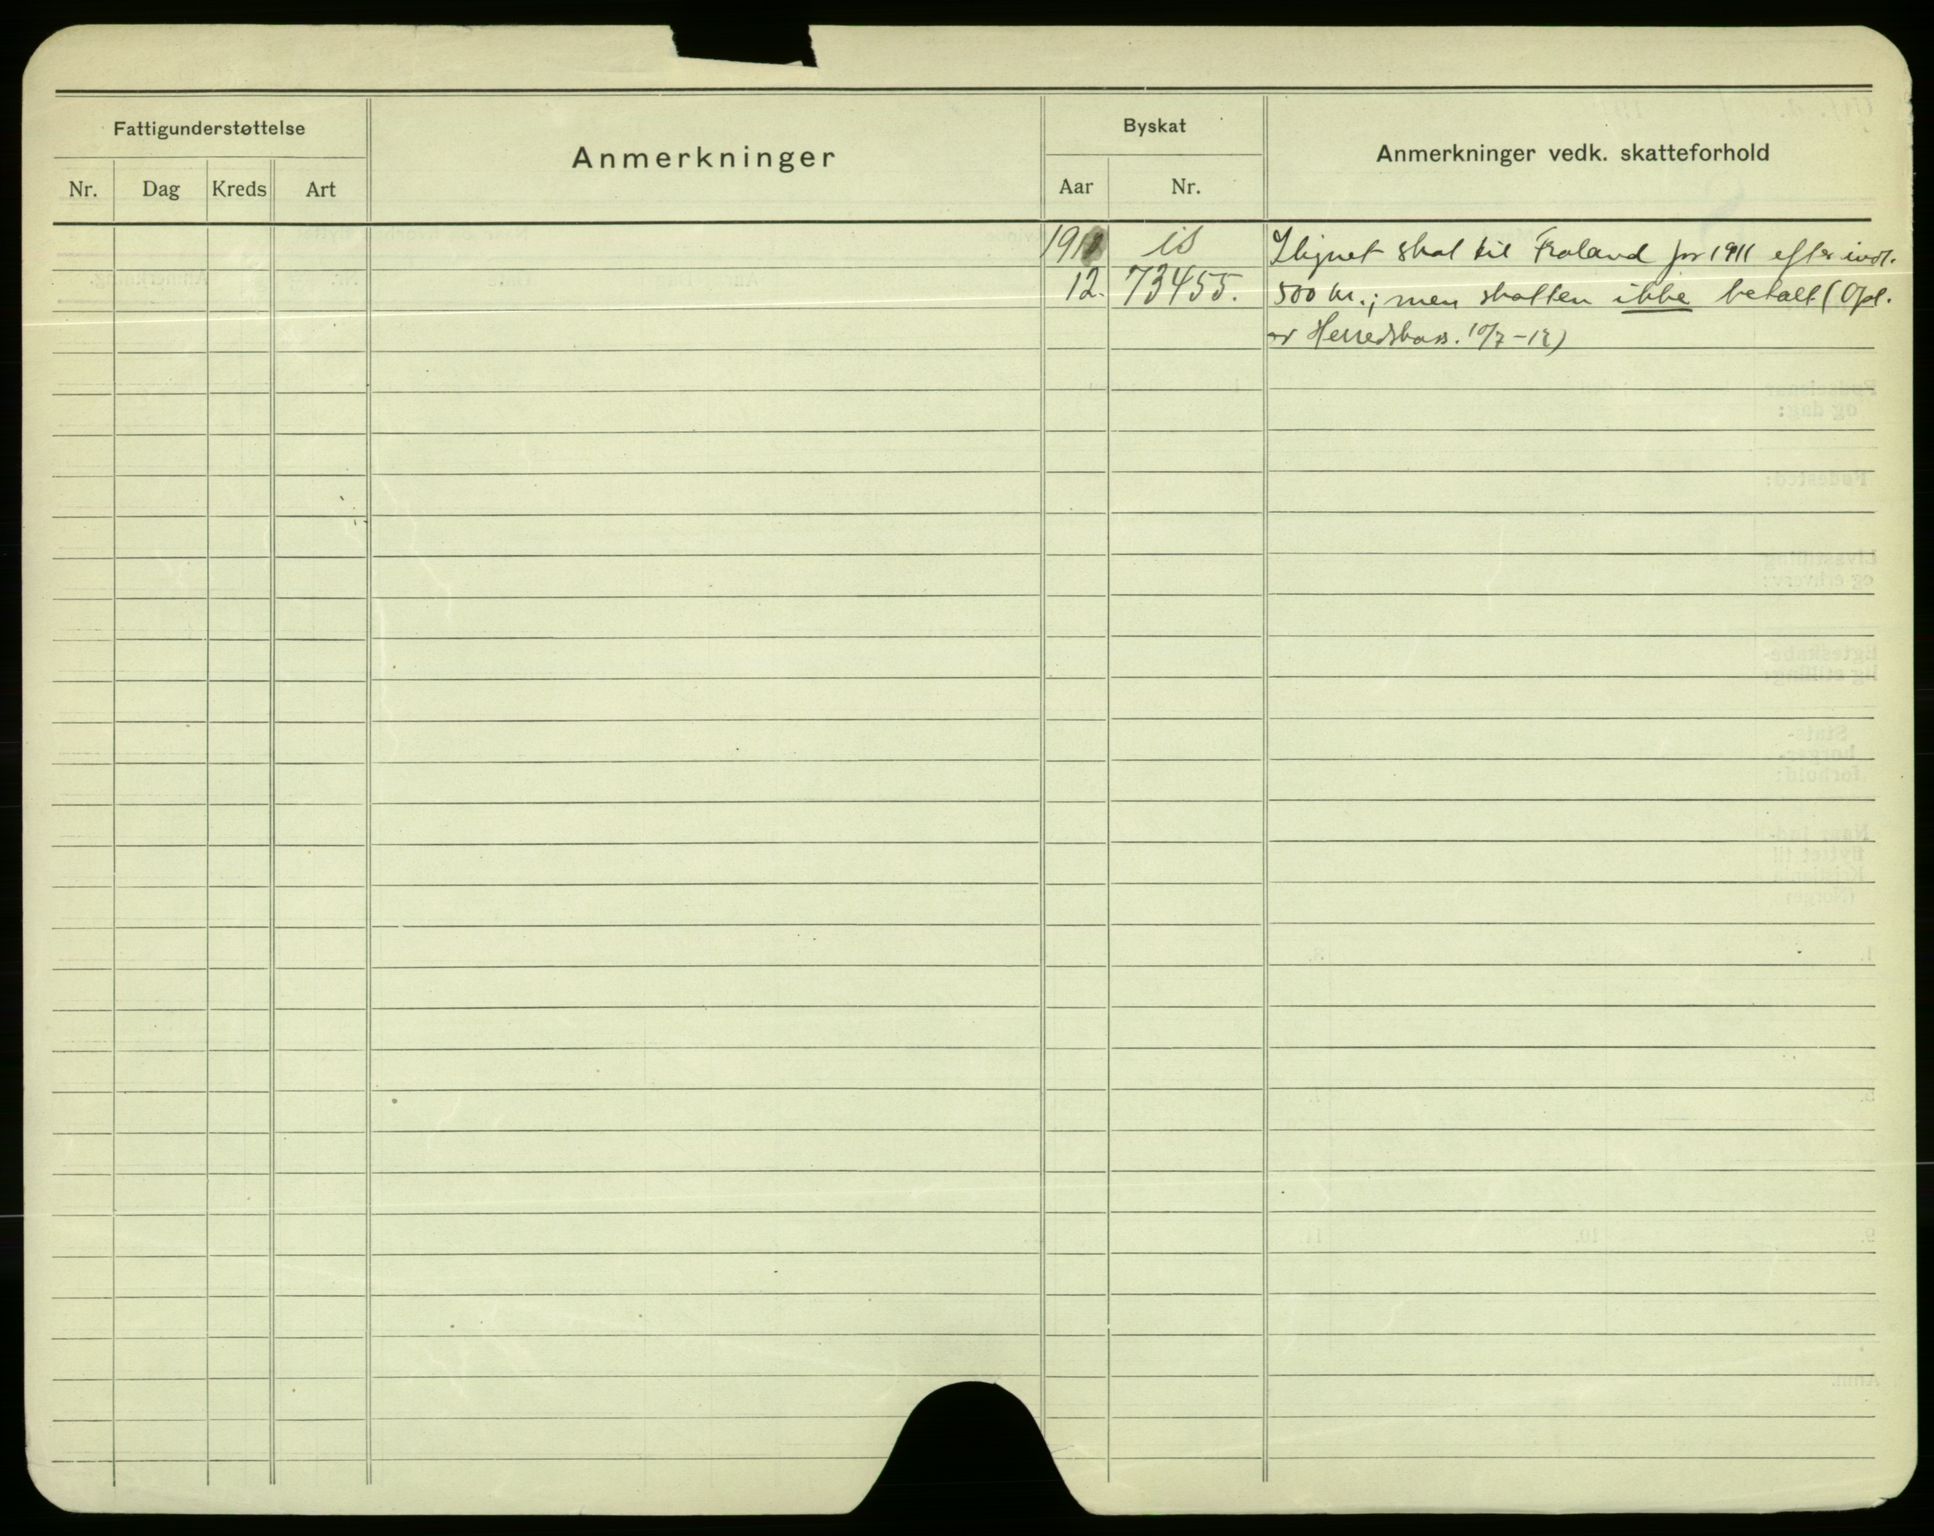 Fattigunderstøttelse
Anmerkninger
Byskat
Anmerkninger vedk. skatteforhold
Nr. Dag Kreds Art
Aar Nr.
1911 is Ilignet skat til Froland for 1911 efter indt.
12. 73455. 500 kr.; men skatten ikke betalt (Opl.
av Herredskass. 10/7-12)